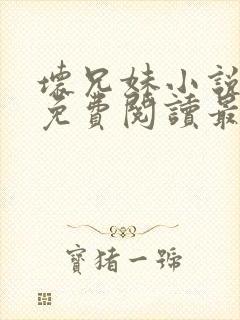 壞兄妹小說
免費閱讀最
寶豬一號